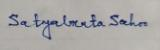 Satyabrata Sahoo